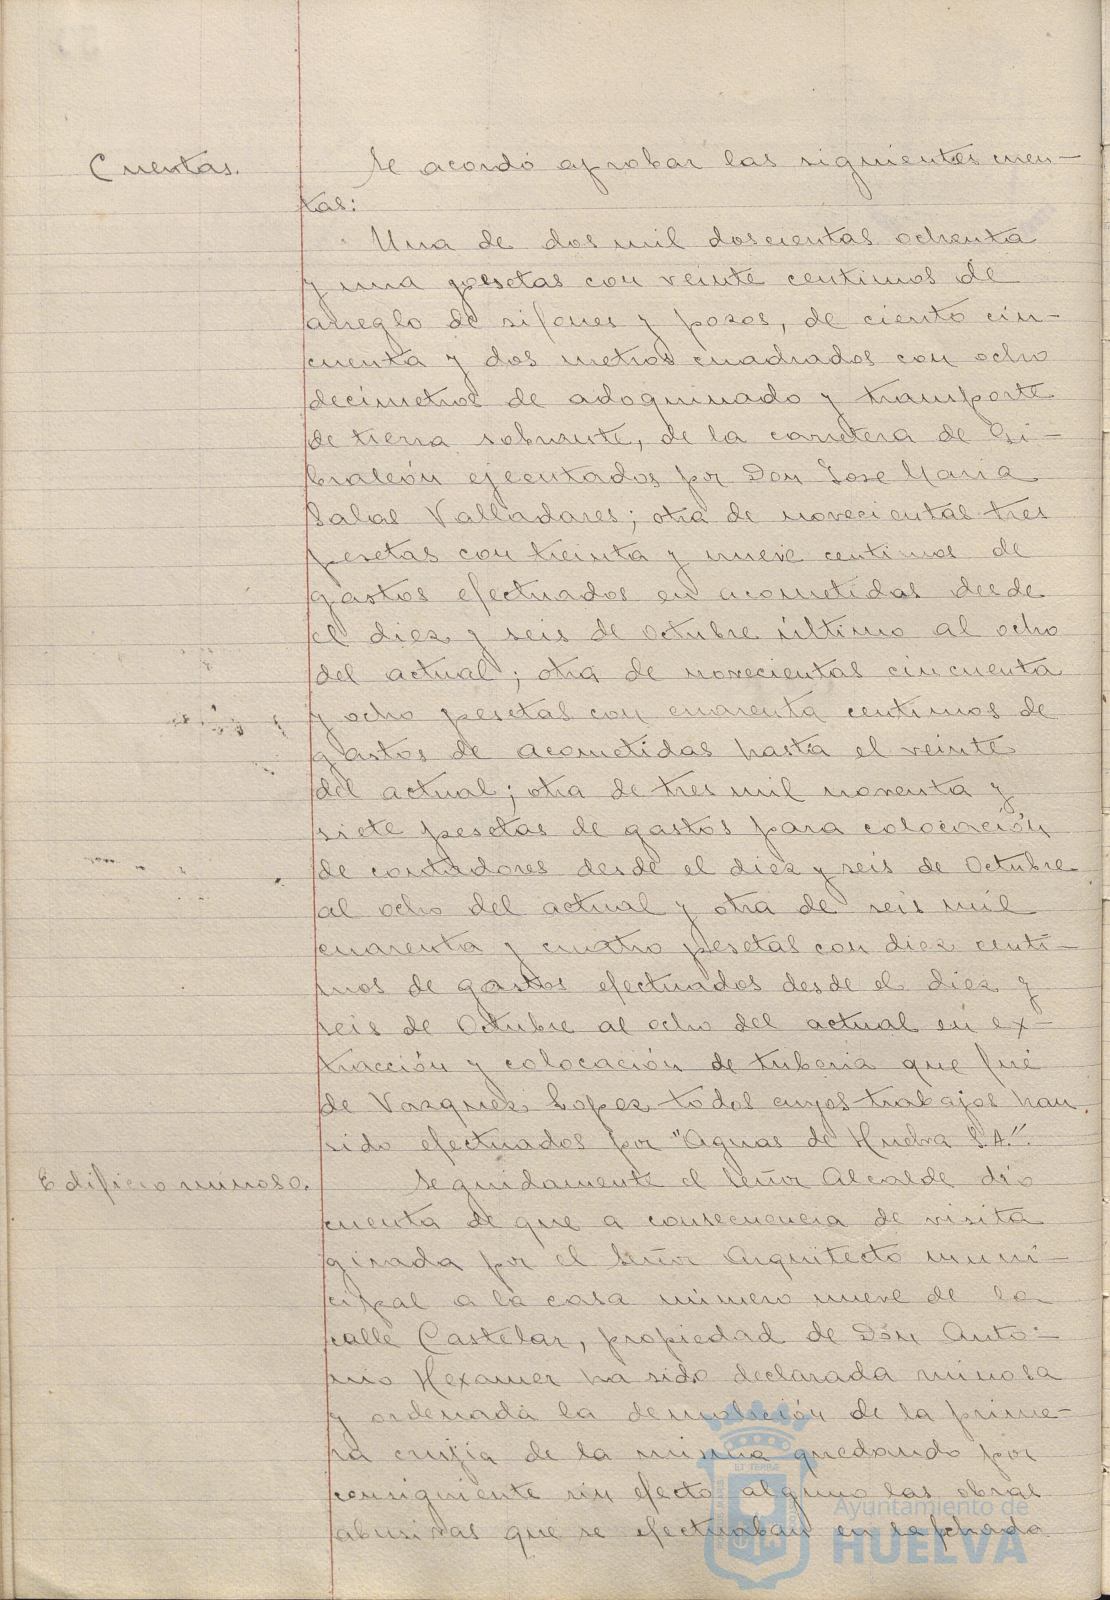 Cuentas.
Se acordó aprobar las siguientes cuen-
tas:
Una de dos mil doscientas ochenta
y una pesetas con veinte centimos de
arreglo de sifones y pozos, de ciento cin-
cuenta y dos metros cuadrados con ocho
decimetros de adoquinado y transporte
de tierra sobrante, de la carretera de Gi-
braleón ejecutados por Don Jose Maria
Salas Valladares; otra de novecientas tres
pesetas con treinta y nueve centimos de
gastos efectuados en acometidas desde
el diez y seis de Octubre último al ocho
del actual; otra de novecientas cincuenta
y ocho pesetas con cuarenta centimos de
gastos de acometidas hasta el veinte
del actual; otra de tres mil noventa y
siete pesetas de gastos para colocación
de contadores desde el diez y seis de Octubre
al ocho del actual y otra de seis mil
cuarenta y cuatro pesetas con diez centi-
mos de gastos efectuados desde el diez y
seis de Octubre al ocho del actual en ex-
tracción y colocación de tuberia que fué
de Vazquez Lopez todos cuyos trabajos han
sido efectuados por "Aguas de Huelva S.A.".
Edificio ruinoso.
Seguidamente el Señor Alcalde dió
cuenta de que a consecuencia de visita
girada por el Señor Arquitecto muni-
cipal a la casa número nueve de la
calle Castelar, propiedad de Dón Anto-
nio Hexamer ha sido declarada ruinosa
y ordenada la demolición de la prime-
ra crujía de la misma quedando por
consiguiente sin efecto alguno las obras
abusivas que se efectuaban en la fachada
Ayuntamiento de
HUELVA